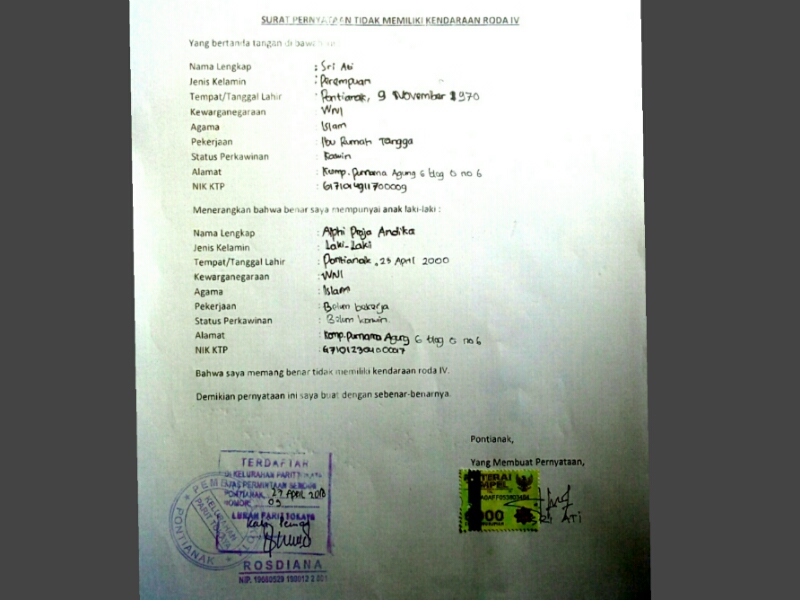 SURAT PERNYATAAN TIDAK MEMILIKI KENDARAAN RODA IV
Yang bertanda tangan di bawah
Nama Lengkap : Sri Ati
Jenis Kelamin : Perempuan
Tempat/Tanggal Lahir : Pontianak, 9 November 1970
Kewarganegaraan : WNI
Agama : Islam
Pekerjaan : Ibu Rumah Tangga
Status Perkawinan : Kawin
Alamat : Komp. Purnama Agung 6 no 6
NIK KTP
Menerangkan bahwa benar saya mempunyai anak laki-laki :
Nama Lengkap : Alphi Praja Andika
Jenis Kelamin : Laki-Laki
Tempat/Tanggal Lahir : Pontianak, 23 April 2000
Kewarganegaraan : WNI
Agama : Islam
Pekerjaan : Belum bekerja
Status Perkawinan : Belum kawin.
Alamat : Komp. Purnama Agung 6 no 6
NIK KTP
Bahwa saya memang benar tidak memiliki kendaraan roda IV.
Demikian pernyataan ini saya buat dengan sebenar-benarnya.
Pontianak,
Yang Membuat Pernyataan,
TERDAFTAR
DI KELURAHAN PARIT TOKAYA
PONTIANAK, 27 APRIL 2018
NOMOR: 09
LURAH PARIT TOKAYA
ROSDIANA
PONTIANAK
KELURAHAN
PARIT TOKAYA
SRI ATI